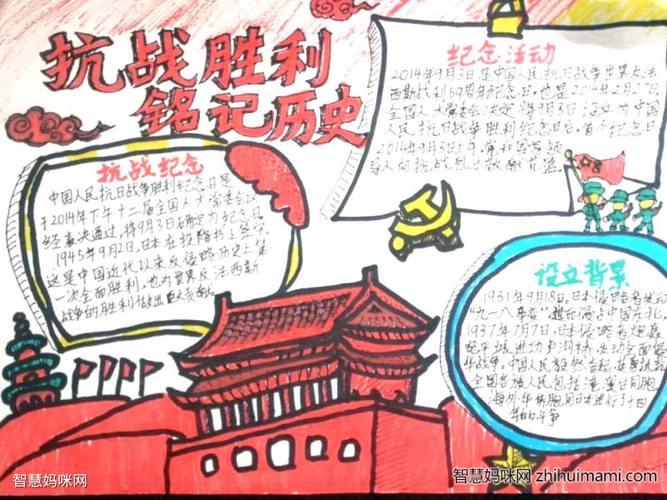 抗战胜利
铭记历史
纪念活动
2014年9月3日是中国人民抗日战争世界反法
西斯战利69周年纪念日，也是2014年2月27日
全国人大常委会决定将9月3日设立为中国
人民抗日战争胜利纪念日后，首个纪念日
2014年9月3日上午，
导人向抗战烈士敬献花篮
抗战纪念
中国人民抗日战争胜利纪念日是
于2014年下午十二届全国人大常委会
经表决通过，将9月3日确定为纪念日
1945年9月2日，日本在投降书上签字
这是中国近代以来反侵略历史上第
一次全面胜利，也为世界反法西斯
战争的胜利做出巨大贡献
设立背景
1931年9月18日，日本侵略者发动
"九一八事变"，中国东北。
1937年7月7日，日本侵略者炮轰
宛平城进攻卢沟桥，发动全面侵
华战争。中国人民毅然奋起，
全国各族人民包括港澳台同胞
海外华侨胞同日本进行了十四
年的斗争
智慧妈咪网
智慧妈咪网 zhihuimami.com